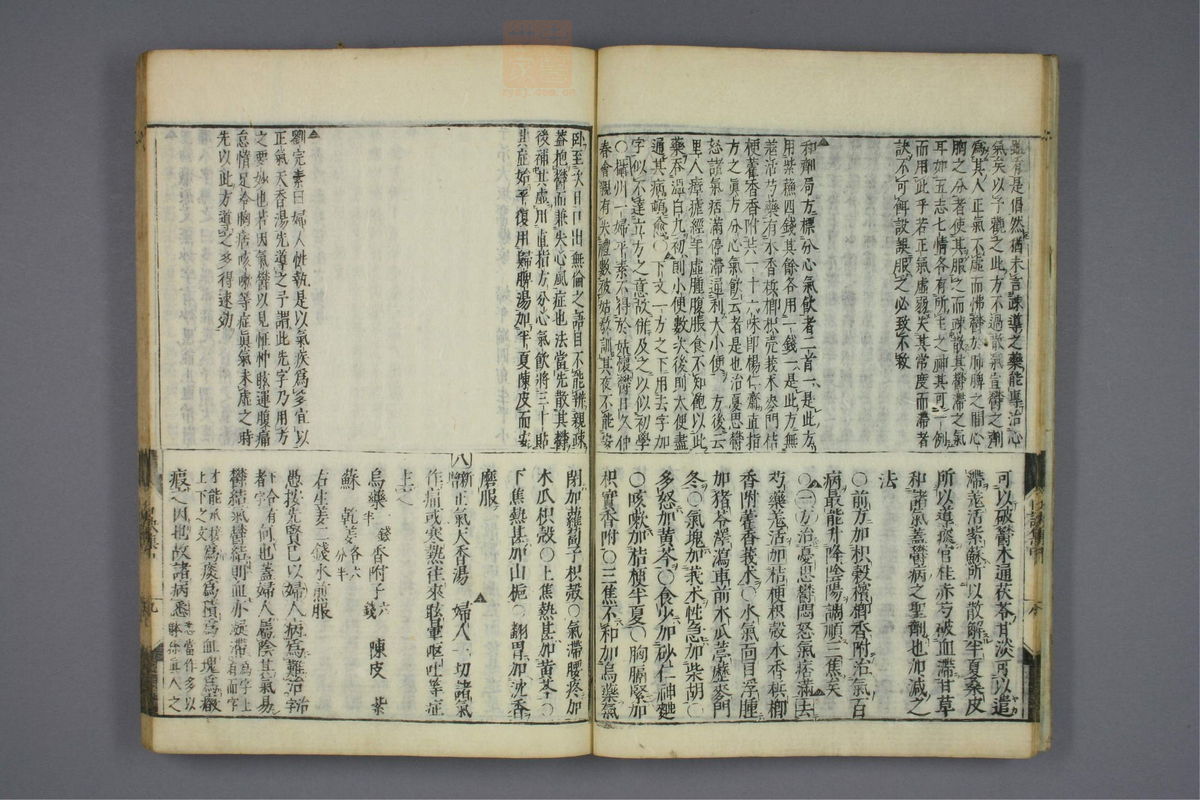 氣矣以予觀之此方不過散氣宣鬱之劑
爲其人正氣不虛而怫鬱於肺脾之間心
胸之分者使其服之而疎散其鬱滯之氣
耳如五志七情各有所主之神其可一例
而用此乎若正氣虛弱失其常度而滯者
訣不可餌誤誤服之必致不救
和劑局方標分心氣飲者二首一是此方
用紫蘓四錢其餘各用一錢一是此方無
羗活芍藥有木香檳榔枳壳莪朮麥門桔
梗藿香香附共一十六味即楊仁齋直指
方之眞方分心氣飲云者是也治憂思鬱
怒諸氣痞滿停滯通利大小便方後云
通其病頓愈○下文一方之下用去字加
字似不達立方之意故併及之以似初學
卧至次日口出無倫之語目不能辨親疎
蓋抱鬱而兼失心風症也法當先散其鬱
後補正虛用直指方分心氣飲將三十貼
其症始平復用歸脾湯加半夏陳皮而安
劉完素曰婦人性執是以氣疾爲多宜以
正氣天香湯先導之予謂此先字乃用方
之要妙也若因氣鬱以見怔忡眩運腹痛
怠惰足冷胸痞咳嗽等症眞氣未虛之時
先以此方道之多得速効
可以破鬱木通茯苓甘淡可以追
滯羗活紫蘇所以散解半夏桑皮
所以導痰官桂赤芍破血滯甘草
和諸氣蓋鬱病之聖劑也加減之
法
○前方加枳穀檳榔香附治氣百
病最能升降陰陽調順三焦
○一方治憂思鬱悶怒氣痞滿去
芍藥羗活加桔梗枳殼木香檳榔
香附藿香莪朮○水氣面目浮腫
加猪苓澤瀉車前木瓜葶藶麥門
冬○氣塊加莪朮性急加柴胡○
多怒加黄芩○食少加砂仁神麯
○咳嗽加桔梗半夏○胸膈緊加
枳實香附○三焦不和加烏藥氣
閉加蘿蔔子枳殼○氣滯腰疼加
木瓜枳殼○上焦熱甚加黄芩○
下焦熱甚加山梔○翻胃加沈香
磨服
八新正氣天香湯 婦人一切諸氣
作痛或寒熱往來眩暈嘔吐等症
上之
烏藥錢半香附子六錢 陳皮 紫
蘇 乾姜各六分半
右生姜三錢水煎服
愚按先賢已以婦人病爲難治
者何也蓋婦人屬陰其氣易
鬱結氣鬱結則血亦凝滯